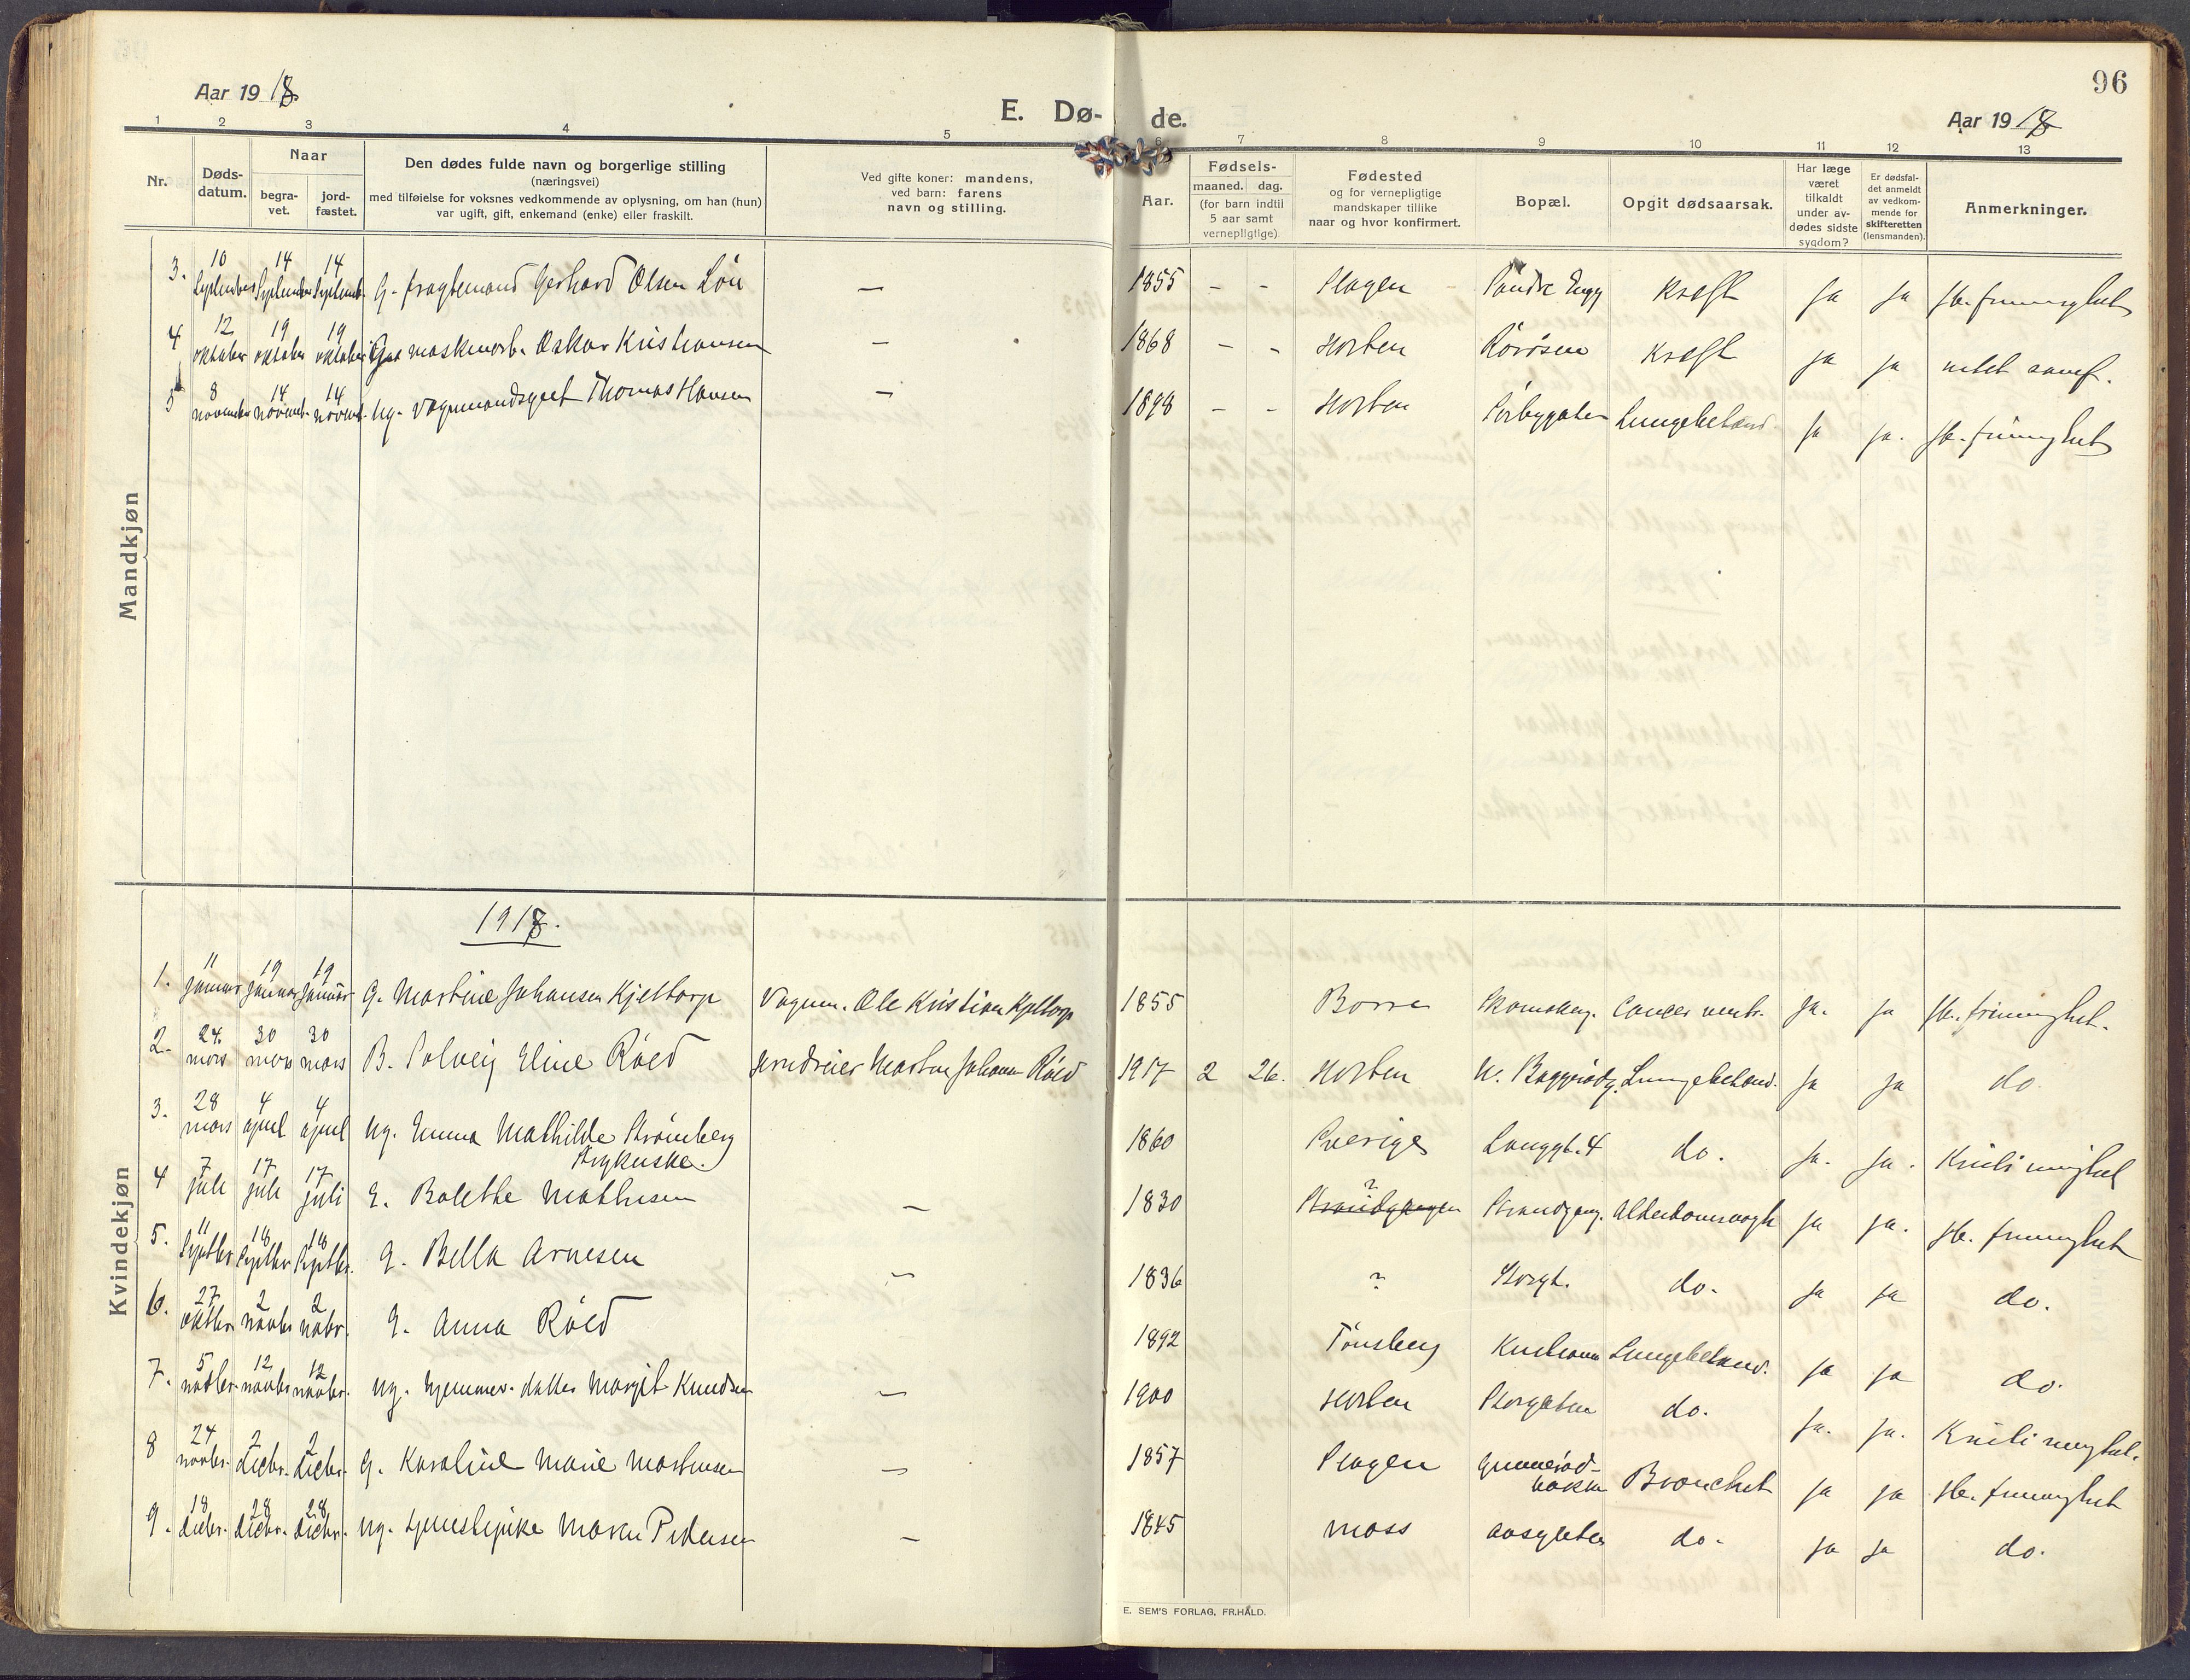 96
Aar 1918.
E. Dø-
de.
Aar 1918
1 2 3 4 5 6 7 8 9 10 11 12 13
Nr.
Døds-
datum.
Naar
begra-
vet.
jord-
fæstet.
Den dødes fulde navn og borgerlige stilling
(næringsvei)
med tilføielse for voksnes vedkommende av oplysning, om han (hun)
var ugift, gift, enkemand (enke) eller fraskilt.
Ved gifte koner: mandens,
ved barn: farens
navn og stilling.
Aar.
Fødsels-
maaned. dag.
(for barn indtil
5 aar samt
vernepligtige)
Fødested
og for vernepligtige
mandskaper tillike
naar og hvor konfirmert.
Bopæl.
Opgit dødsaarsak.
Har læge
været
tilkaldt
under av-
dødes sidste
sygdom?
Er dødsfal-
det anmeldt
av vedkom-
mende for
skifteretten
(lensmanden).
Anmerkninger.
Mandkjøn
3. 10 September 14 September 14 Septemb. G. fragtemand Gerhard Olsen Løn — 1855 - - Slagen Søndre Engg Kræft ja ja st. frimenighet
4 12 oktober 19 oktober 19 oktober maskinarb. Oskar Kristiansen — 1868 - - Horten Rørosen Kræft ja ja utlet samf.
5 8 november 14 novemb. 14 novemb. ug. vognmandsgut Thomas Hansen — 1898 - - Horten Sørbygaten Lungebetænd. ja ja. st. frimenighet
Kvindekjøn
1918.
1. 11 januar 19 januar 19 januar G. Martine Johansen Kjeltorp Vognm. Ole Kristian Kjeltorp 1855 Borre Skomakerg. Cancer ventr. ja. ja st. frimenighet.
2. 24. mars 30 mars 30 mars B. Solveig Eline Røed Martin Johann Røed 1917 2 26. Horten N. Baggerødg. Lungebetænd. ja ja do
3. 28 mars 4 april 4 april ug. Emma Mathilde Strömberg
Strykerske. 1860 Sverige Langgt. 4 do. ja. ja. Kristi menighet
4 7 juli 17 juli 17 juli E. Bolethe Mathisen — 1830 ? Strandgangen Strandgang. Alderdomssvagh. ja ja. st. frimenighet
5. 11 Septbr 18 Septbr 18 Septbr. E. Bella Arnesen — 1836 ? Storgt. do. ja ja do.
6. 27 oktbr. 2 novbr 2 nobr. E. Anna Røed 1892 Tønsberg Kristiania Lungebetænd. ja ja do.
7. 5 novbr. 12 novbr. 12 novbr. ug. hjemmev. datter Margit Knudsen — 1900 Horten Storgaten do. ja. ja. Kristi menighet.
8 24 novbr. 2 decbr. 2 decbr. G. Karoline Marie Martinsen — 1857 Slagen Grønnerød-
bakken Bronchit ja ja st. frimenighet
9. 18 decbr. 28 decbr. 28 decbr. ug. tjenestepike Maren Pedersen — 1845 Moss aasgaten do. ja ja do.
E. SEM'S FORLAG, FR.HALD.